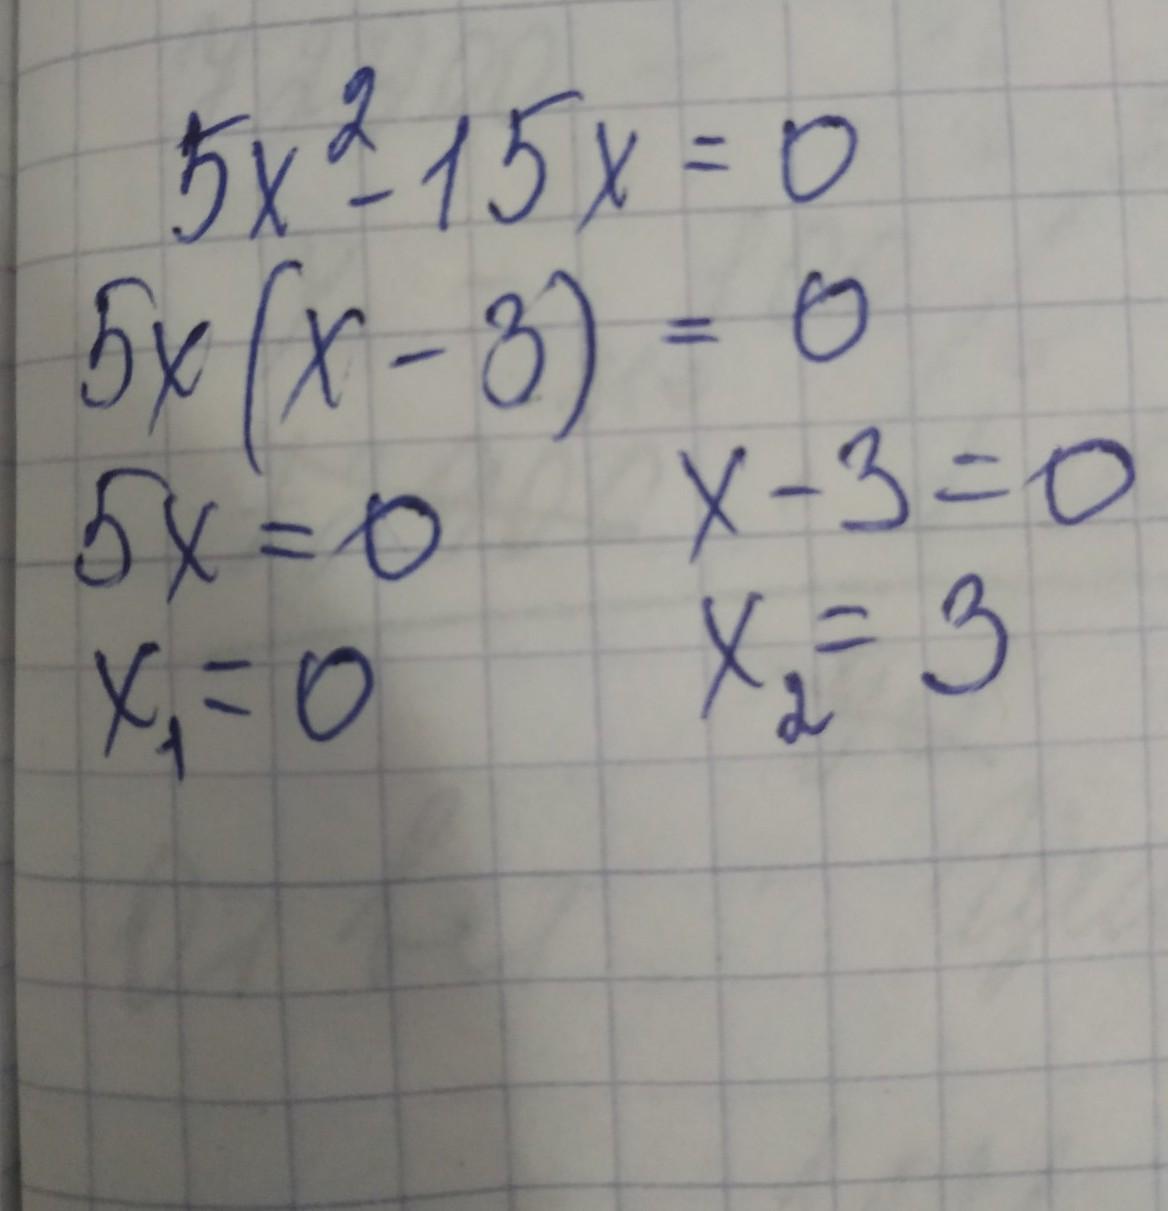 5x² - 15x = 0
5x(x - 3) = 0
5x = 0    x - 3 = 0
x₁ = 0    x₂ = 3